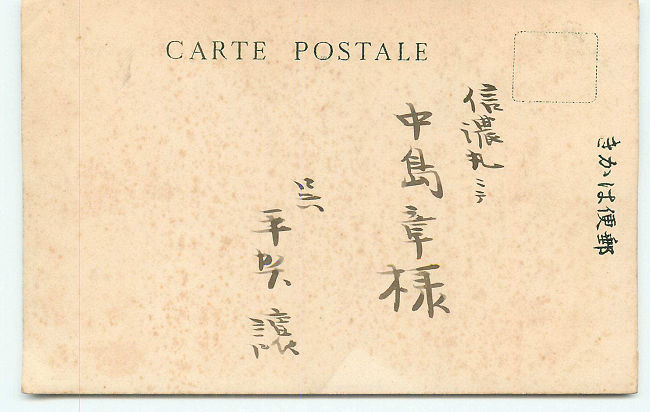 CARTE POSTALE
きかは便郵
信濃丸ニテ
中島章様
呉
平賀譲